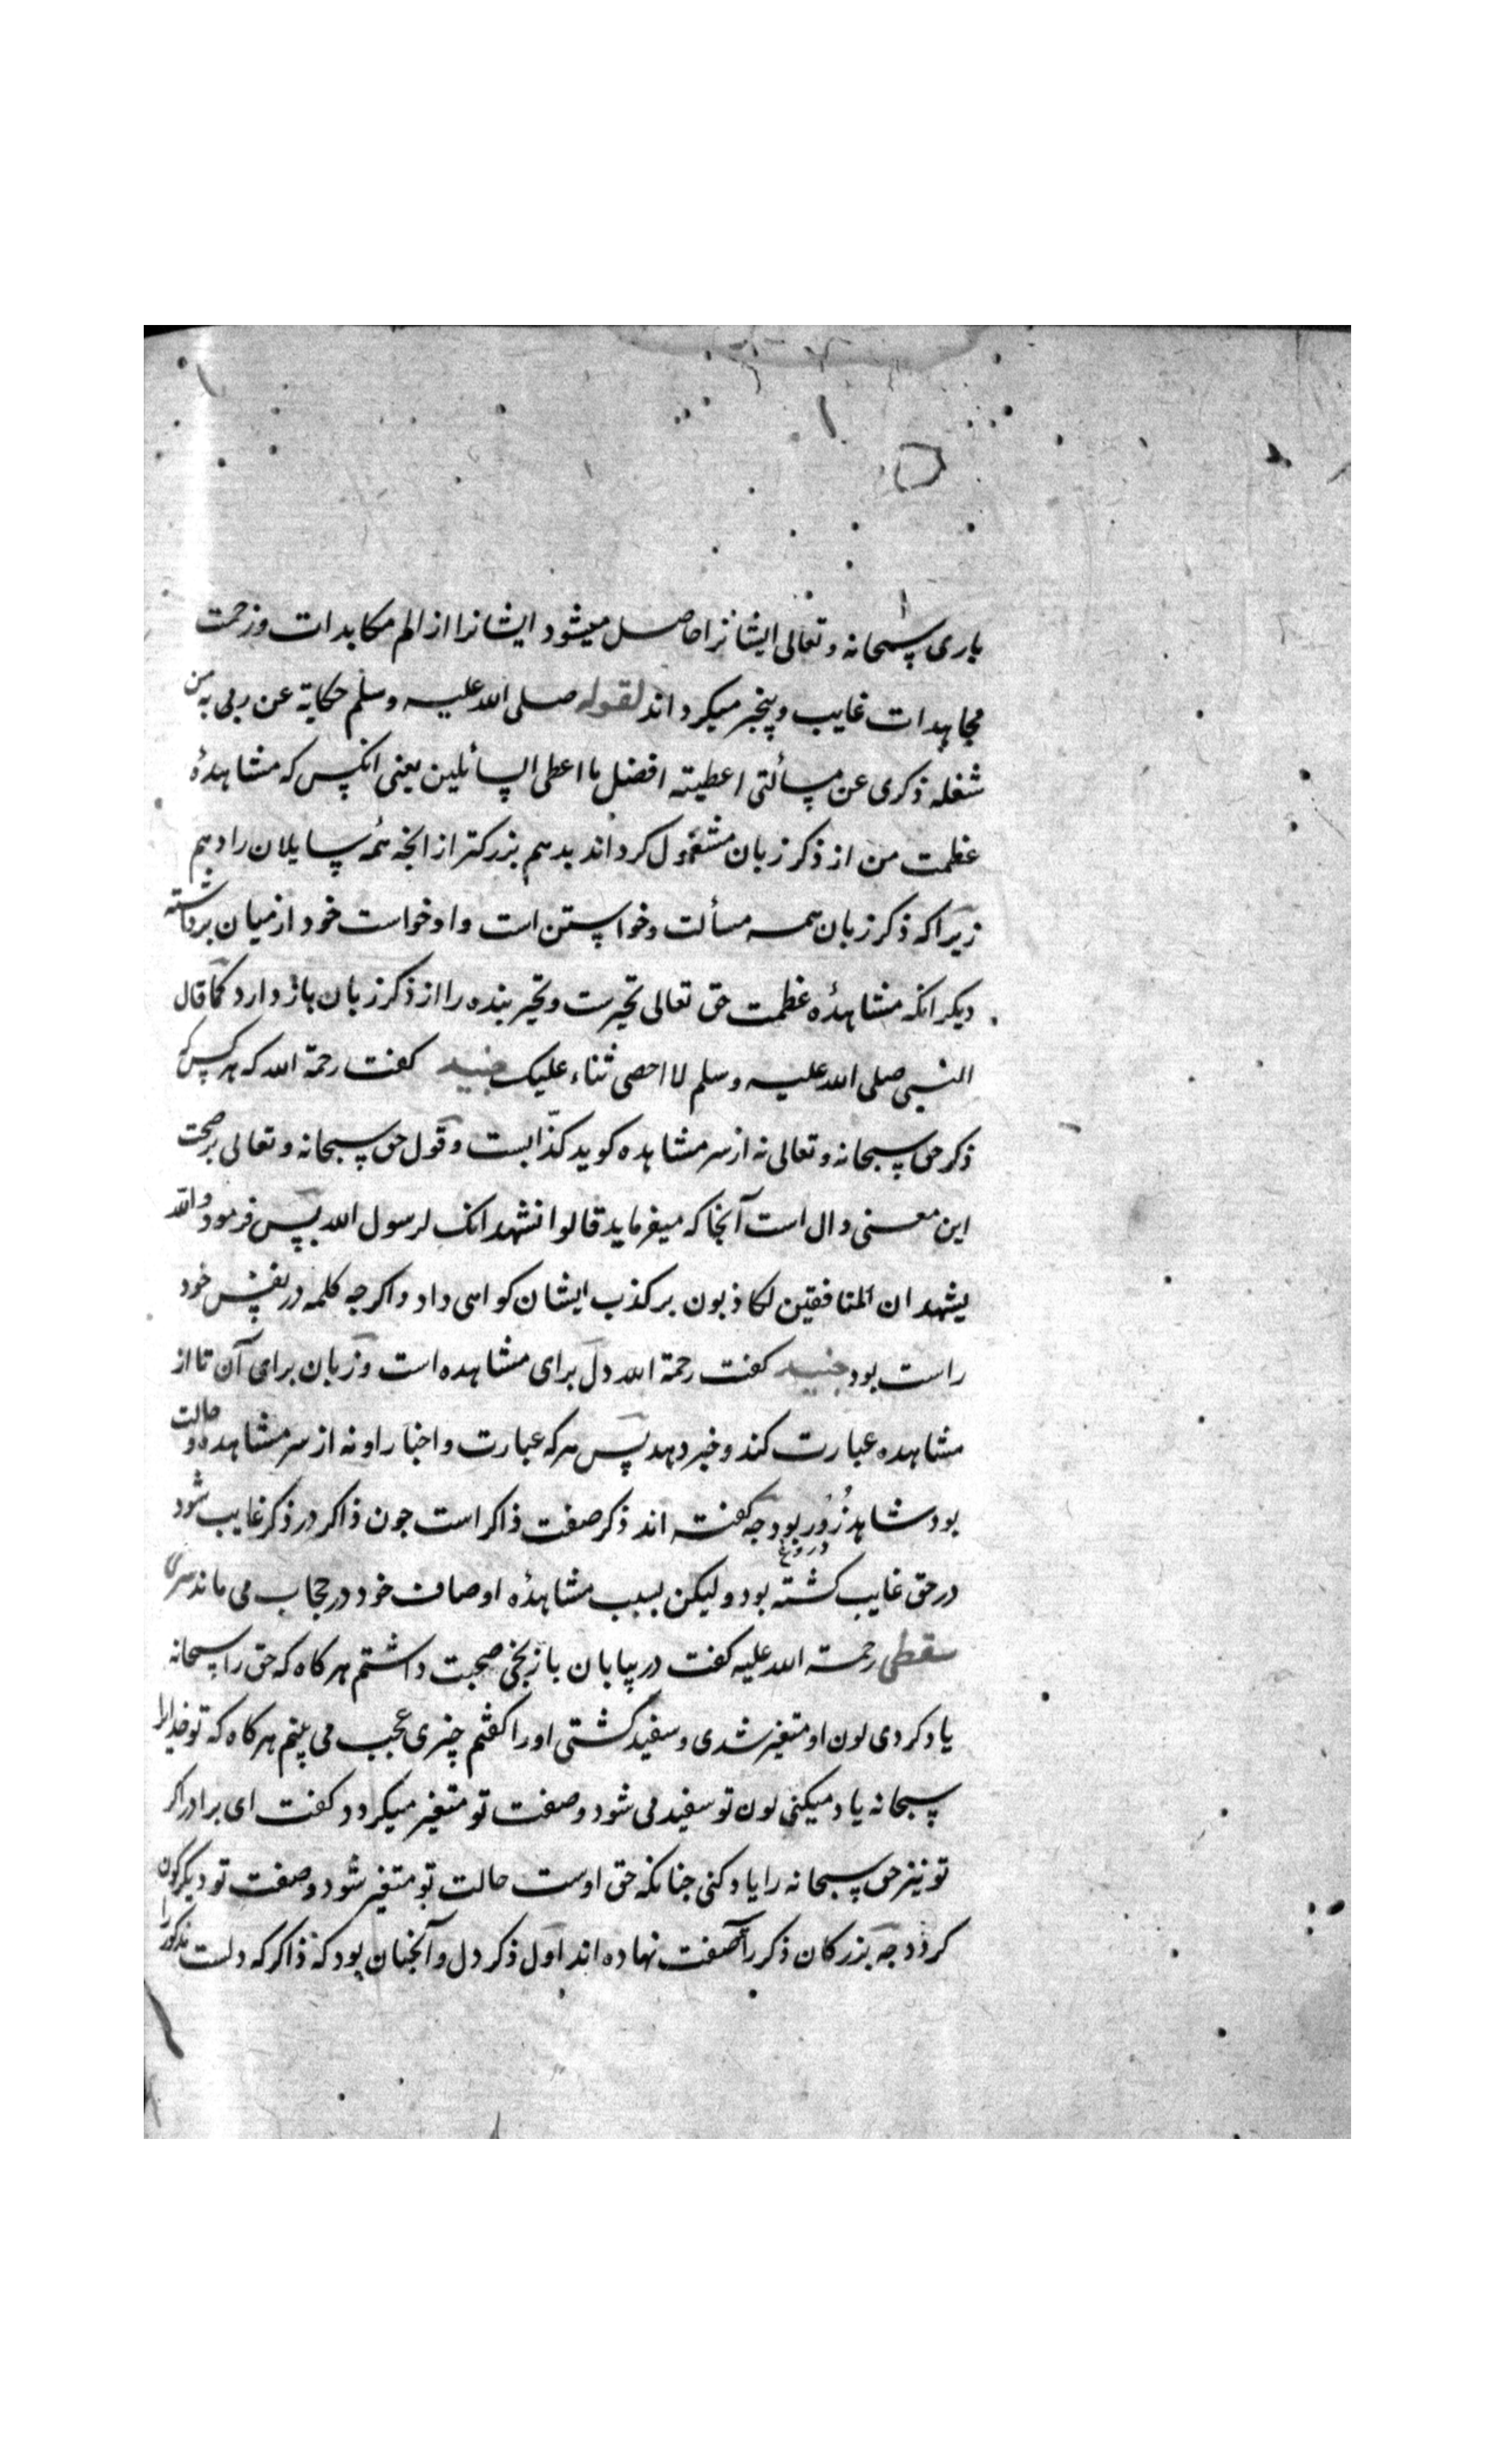 باری سبحانه و تعالی ایشانرا حاصل میشود ایشانرا از الم مکابدات و زحمت
مجاهدات غایب و بیخبر میکرداند لقوله صلی الله علیه وسلم حکایة عن ربی به من
شغله ذکری عن مسألتی اعطیته افضل ما اعطی السائلین یعنی انکس که مشاهدهٔ
عظمت من از ذکر زبان مشغول کرداند بدهم بزرکتر از انجه همه سایلان را دهم
زیرا که ذکر زبان همه مسألت و خواستن است و او خواست خود از میان برداشته
دیکر انکه مشاهدهٔ عظمت حق تعالی تحیرست و تحیر بنده را از ذکر زبان باز دارد کما قال
النبی صلی الله علیه وسلم لا احصی ثناء علیک جنید کفت رحمة الله که هر کس که
ذکر حق سبحانه و تعالی نه از سر مشاهده کوید کذابست و قول حق سبحانه و تعالی بر صحت
این معنی دال است آنجا که میفرماید قالوا نشهد انک لرسول الله پس فرمود والله
یشهد ان المنافقین لکاذبون بر کذب ایشان کواهی داد و اکرجه کلمه در نفس خود
راست بود جنید کفت رحمة الله دل برای مشاهده است و زبان برای آن تا از
مشاهده عبارت کند و خبر دهد پس هر که عبارت و اخبار او نه از سر مشاهده و حالت
بود شاهد زُور بود جه کفته اند ذکر صفت ذاکر است جون ذاکر در ذکر غایب شود
دروغ
در حق غایب کشته بود و لیکن بسبب مشاهدهٔ اوصاف خود در حجاب می ماند سری
سقطی رحمة الله علیه کفت در بیابان با زنجی صحبت داشتم هر کاه که حق را سبحانه
یاد کردی لون او متغیر شدی و سفید کشتی او را کفتم چیزی عجب می بینم هر کاه که تو خدایرا
سبحانه یاد میکنی لون تو سفید می شود و صفت تو متغیر میکردد کفت ای برادر اکر
تو نیز حق سبحانه را یاد کنی جنانکه حق اوست حالت تو متغیر شود و صفت تو دیکرکون
کردد جه بزرکان ذکر را صفت نهاده اند اول ذکر دل و آنجنان بود که ذاکر که دلست مذکور را